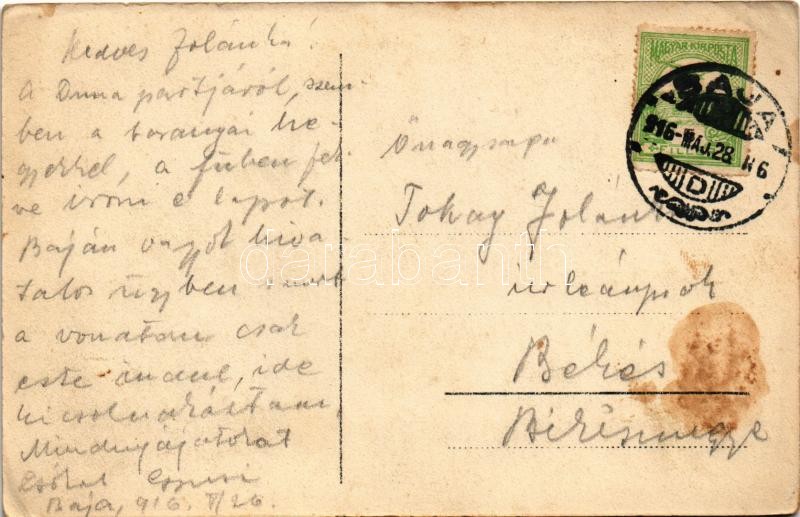 Kedves Jolánka!
A Duna partjáról, szem-
ben a baranyai he-
gyekkel, a fűben fek-
ve írom e lapot.
Baján vagyok hiva
talos ügyben s mert
a vonatom csak
este indul, ide
kicsolnakáztam.
Mindnyájatokat
Csókol
Baja, 916. V/26.
MAGYAR KIR. POSTA
BAJA
916-MÁJ.28. N6
D
Őnagysága
Tokay Jolán
úrleánynak
Békés
Békésmegye
darabanth